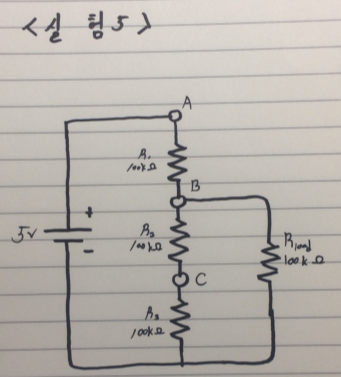 <실험 5>
A
R₁
100kΩ
B
5V
+
-
R₂
100kΩ
Rload
100kΩ
C
R₃
100kΩ